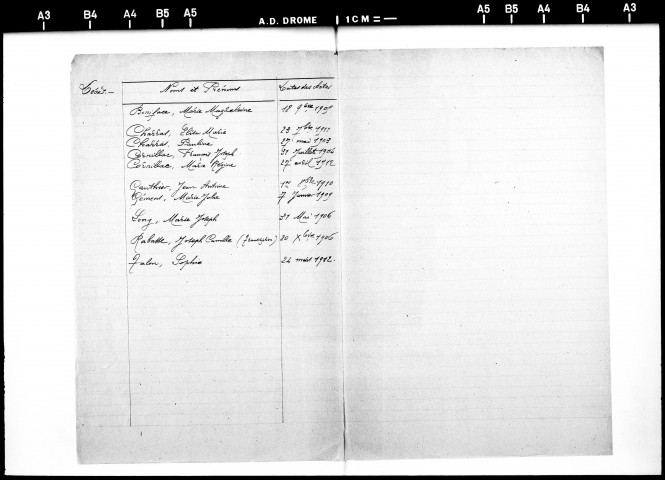 A3 B4 A4 B5 A5 A.D. DROME 1CM A5 B5 A4 B4 A3
Décès.— Noms et Prénoms Dates des Actes
Boniface, Marie Magdeleine 18 9bre 1909
Charras, Elisa Marie 23 7bre 1911
Charras, Pauline 27 mai 1903
Cornillac, François Joseph 31 Juillet 1904
Cornillac, Marie Régine 27 avril 1912
Gauthier, Jean Antoine 1910
Gément, Marie Julie 7 Janvier 1909
Long, Marie Joseph 31 Mai 1906
Rabatte, Joseph Camille 20 Xbre 1906
Talon, Sophie 24 mars 1912.